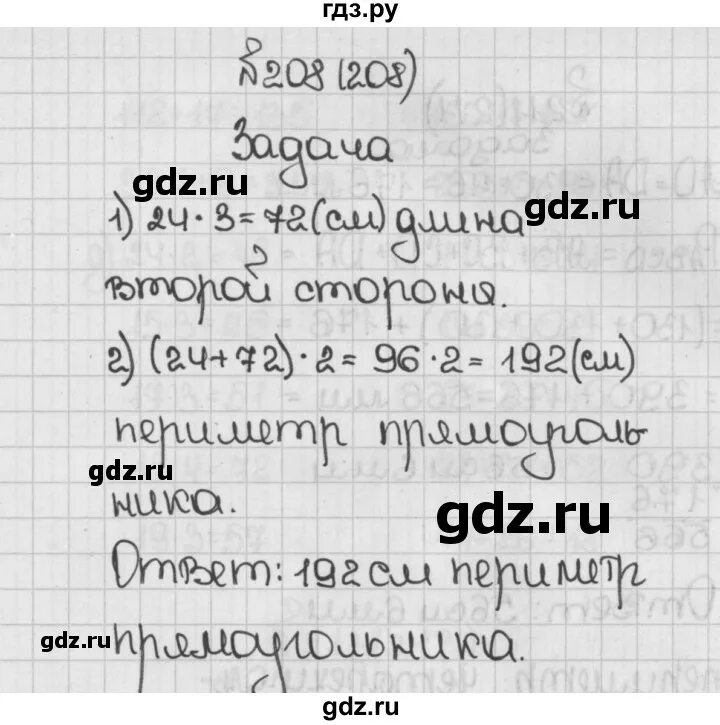 гдз.ру
№208 (208)
Задача
gdz.ru
1) 24·3=72(см) длина
gdz.ru
второй стороны.
2) (24+72)·2=96·2=192(см)
периметр прямоуголь
gdz.ru
ника.
gdz.ru
Ответ: 192см периметр
gdz.ru
прямоугольника.
gdz.ru
gdz.ru